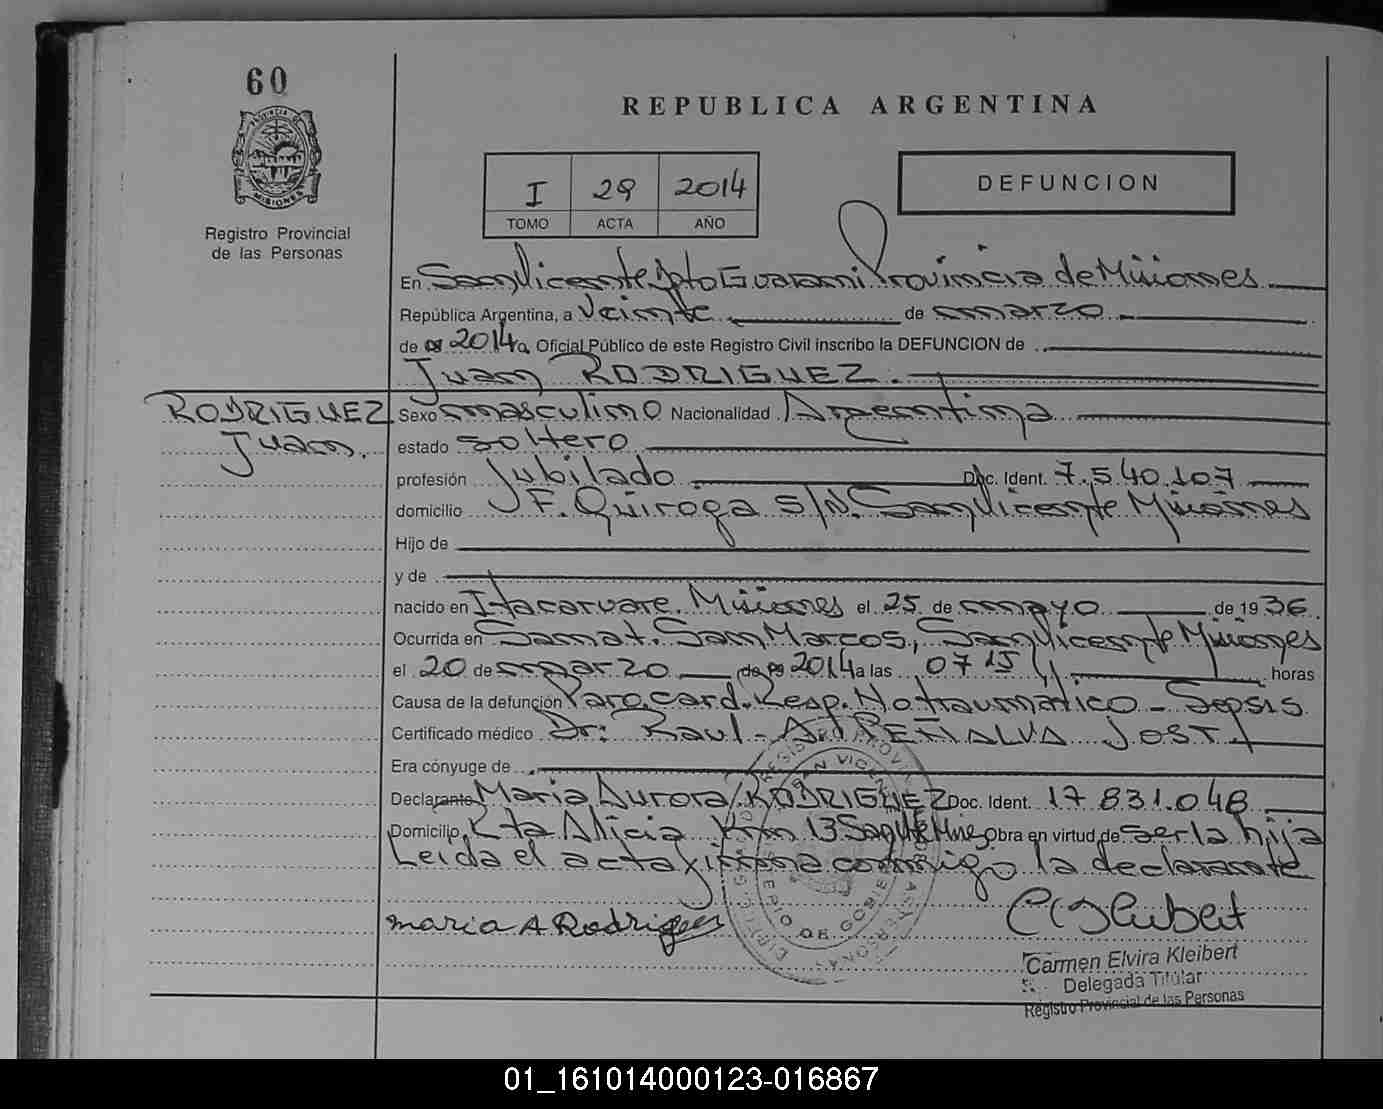 60
PROVINCIA DE
MISIONES
Registro Provincial
de las Personas
REPUBLICA ARGENTINA
I 29 2014
TOMO ACTA AÑO
DEFUNCION
En San Vicente Dpto Guarani Provincia de Misiones
República Argentina, a Veinte de marzo
de 2014 a, Oficial Público de este Registro Civil inscribo la DEFUNCION de
Juan RODRIGUEZ.
RODRIGUEZ
Juan.
Sexo masculino Nacionalidad Argentina
estado soltero
profesión Jubilado Doc. Ident. 7.540.107
domicilio F. Quiroga S/N. San Vicente Misiones
Hijo de
y de
nacido en Itacaruare. Misiones el 25 de mayo de 1936
Ocurrida en Sanat. San Marcos, San Vicente Misiones
el 20 de marzo de 2014 a las 07 15 horas
Causa de la defunción Paro. card. Resp. No traumatico - Sepsis
Certificado médico Dr: Raul - A. PEÑALVA JOST.
Era cónyuge de
Declarante Maria Aurora RODRIGUEZ Doc. Ident. 17 831.048
Domicilio, Kta Alicia Km 13 San Vte Mnes Obra en virtud de ser la hija
Leida el acta firma conmigo la declarante
maria A Rodriguez
Carmen Elvira Kleibert
Delegada Titular
Registro Provincial de las Personas
01_161014000123-016867